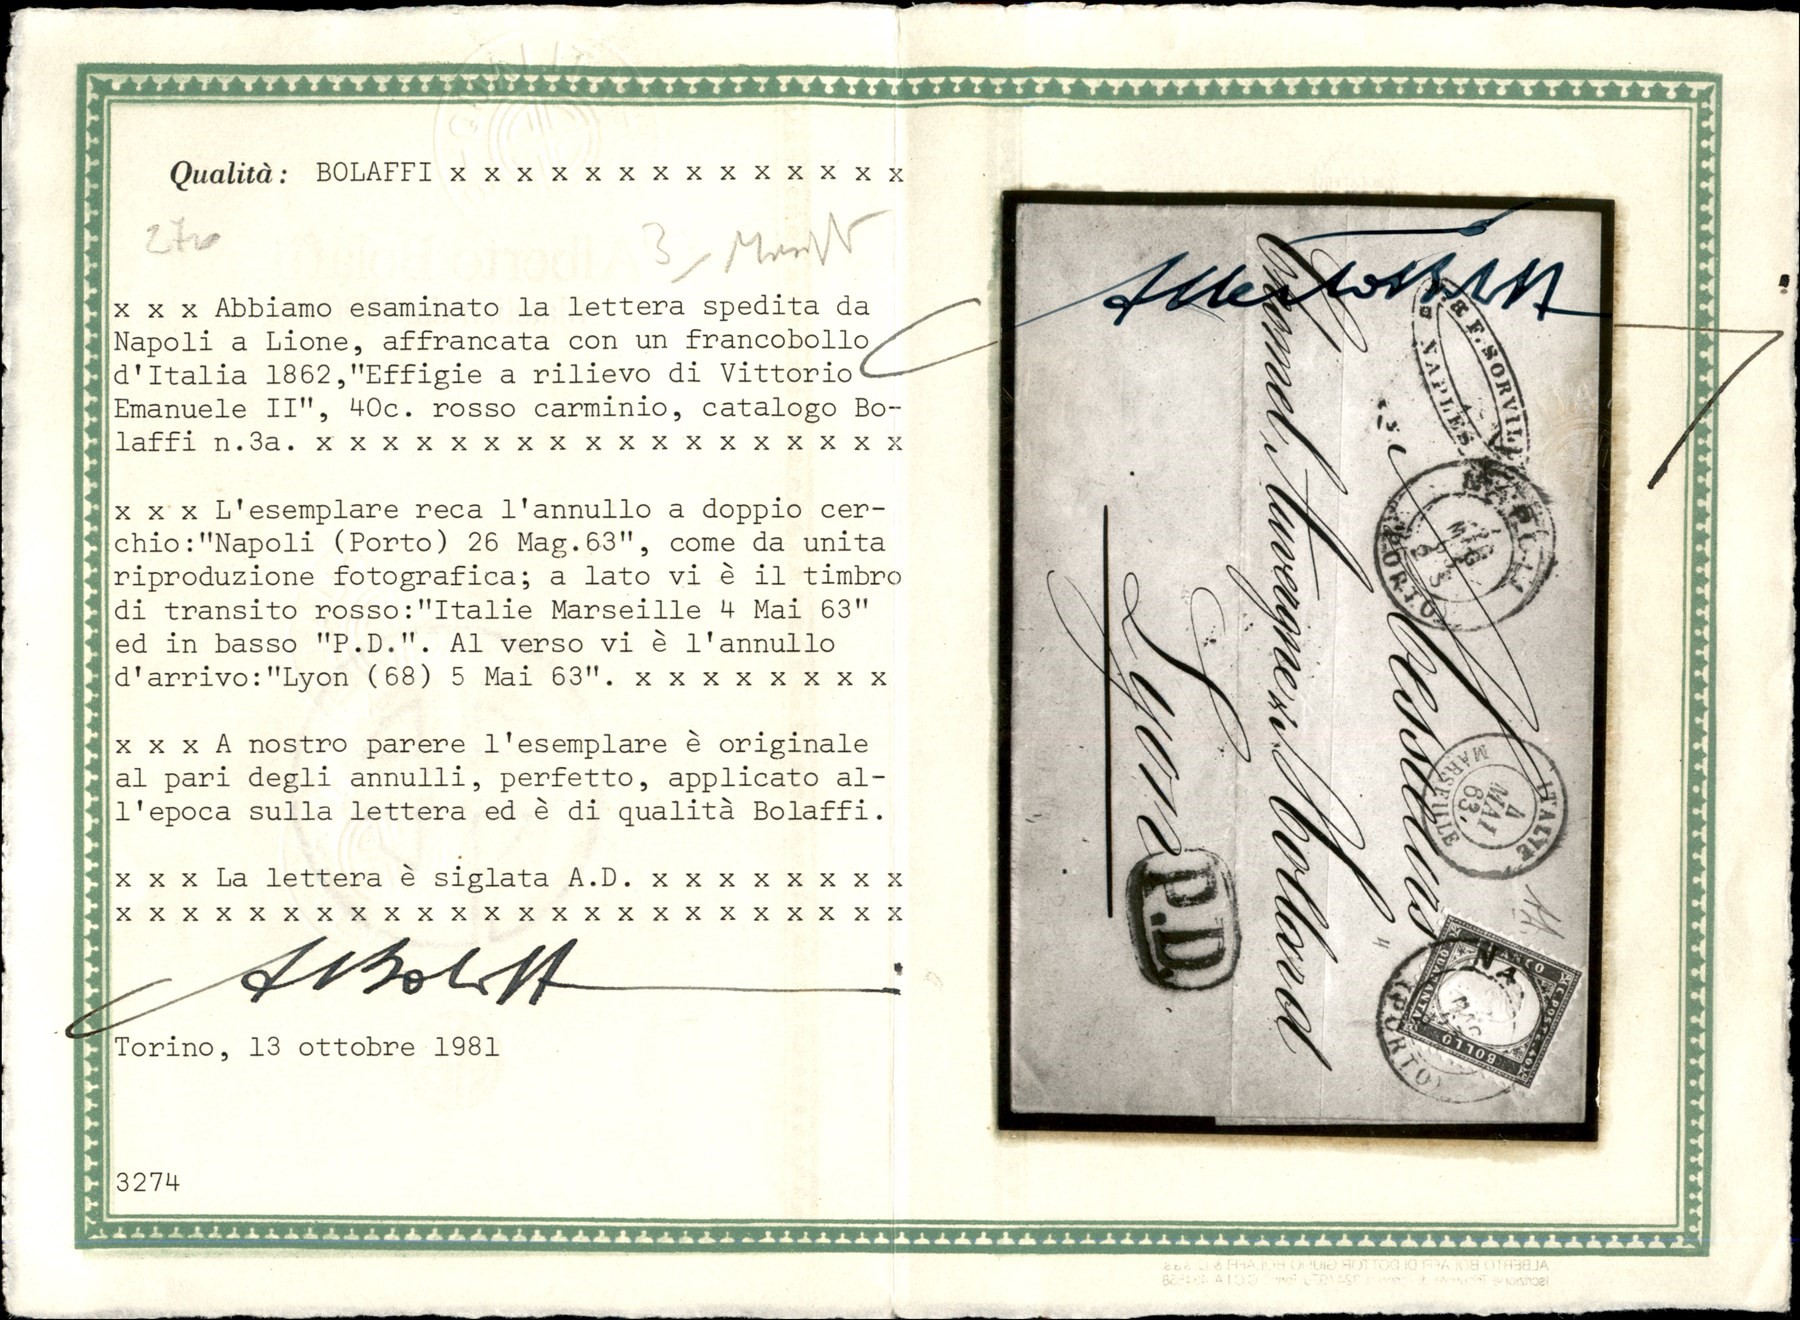 Qualità: BOLAFFI x x x x x x x x x x x x x x
3
x x x Abbiamo esaminato la lettera spedita da
Napoli a Lione, affrancata con un francobollo
d'Italia 1862,"Effigie a rilievo di Vittorio
Emanuele II", 40c. rosso carminio, catalogo Bo-
laffi n.3a. x x x x x x x x x x x x x x x x x x
x x x L'esemplare reca l'annullo a doppio cer-
chio:"Napoli (Porto) 26 Mag.63", come da unita
riproduzione fotografica; a lato vi è il timbro
di transito rosso:"Italie Marseille 4 Mai 63"
ed in basso "P.D.". Al verso vi è l'annullo
d'arrivo:"Lyon (68) 5 Mai 63". x x x x x x x x
x x x A nostro parere l'esemplare è originale
al pari degli annulli, perfetto, applicato al-
l'epoca sulla lettera ed è di qualità Bolaffi.
x x x La lettera è siglata A.D. x x x x x x x x
x x x x x x x x x x x x x x x x x x x x x x x x
ABolaffi
Torino, 13 ottobre 1981
3274
& F. SORVILL
NAPLES
NAPOLI
MAG
63
(PORTO)
Messieurs
Lyons
ITALIE
4
MAI
63
MARSEILLE
P.D.
FRANCO
BOLLO
QUARANTA
C. 40
NA
MAG
(PORTO)
ALBERTO BOLAFFI DI DOTTOR GIULIO BOLAFFI & C. s.a.s.